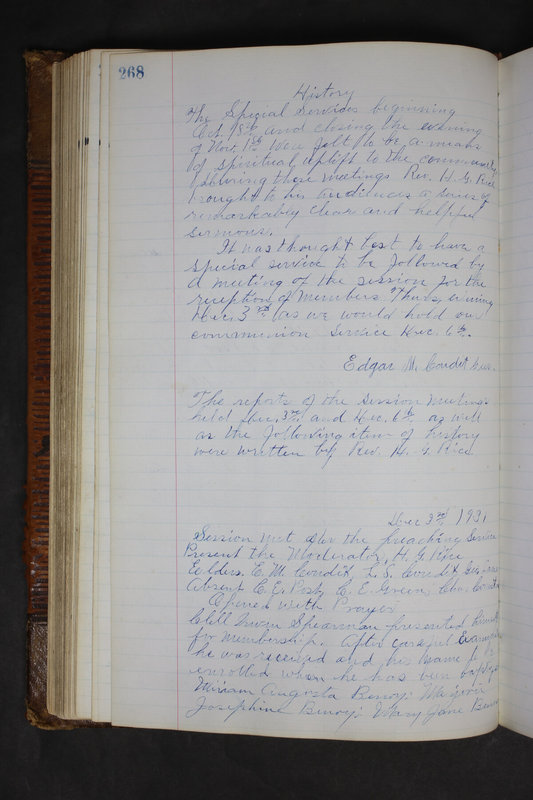 268
History
The Special Services beginning
Oct 18th and closing the evening
of Nov. 1st were felt to be a means
of spiritual uplift to the community
During these meetings Rev. H. G. Rice
brought to his audiences a series of
remarkably clear and helpful
sermons.
It was thought best to have a
special service to be followed by
a meeting of the session for the
reception of members Thurs. evening
Dec. 3rd as we would hold our
communion service Dec. 6th.
Edgar M. Condit
The reports of the Session meetings
held Dec. 3rd and Dec. 6th as well
as the following item of history
were written by Rev. H. G. Rice.
Dec 3rd 1931
Session met after the preaching service
Present the Moderator, H. G. Rice
Elders. E. M. Condit, L. S. Condit
Absent C. E. Post, C. E. Green, Chas.
Opened with Prayer
Spearman presented himself
for membership. After careful
he was received and his name to be
enrolled when he has been baptized
Miriam Augusta
Josephine Mary Jane